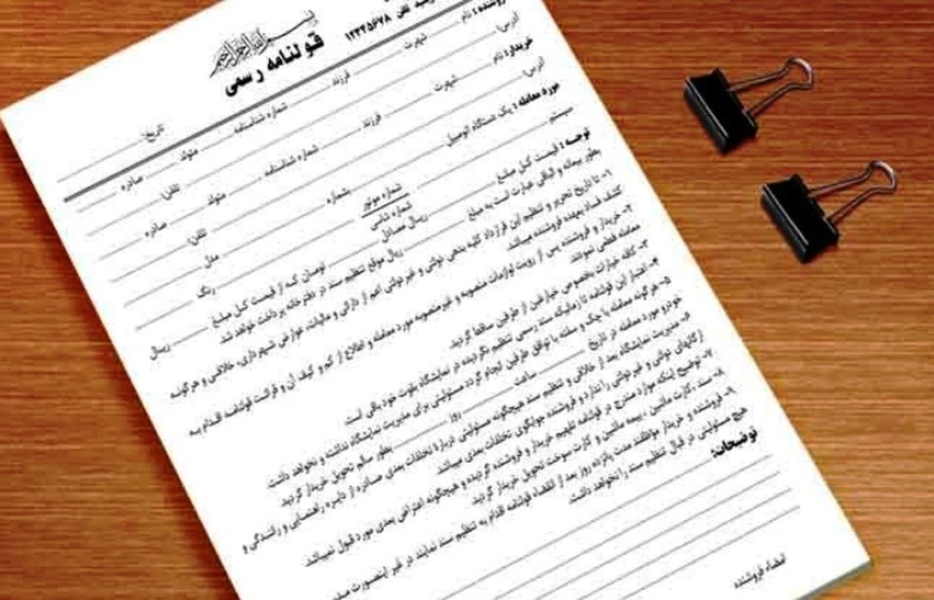 بسم الله الرحمن الرحیم
قولنامه رسمی
تلفن ۱۲۳۴۵۶۷۸
تاریخ:
فروشنده: نام شهرت فرزند شماره شناسنامه متولد صادره
آدرس: تلفن:
خریدار: نام شهرت فرزند شماره شناسنامه متولد صادره
آدرس: تلفن:
مورد معامله: یک دستگاه اتومبیل بشماره مدل
سیستم شماره موتور شماره شاسی رنگ
توجه: قیمت کل مبلغ ریال معادل تومان که از قیمت کل مبلغ ریال
بطور بیعانه و الباقی عبارت است به مبلغ ریال موقع تنظیم سند در دفترخانه پرداخت خواهد شد.
۱- تا تاریخ تحریر و تنظیم این قرارداد کلیه بدهی دولتی و غیر دولتی اعم از دارائی و مالیات، عوارض شهرداری، خلافی و هرگونه
کشف فساد بعهده فروشنده میباشد.
۲- خریدار و فروشنده پس از رویت لوازمات منصوبه و غیرمنصوبه مورد معامله و اطلاع از کم و کیف آن و قرائت قولنامه اقدام به
معامله قطعی نمودند.
۳- کافه خیارات بخصوص خیار غبن از طرفین ساقط گردید.
۴- اعتبار این قولنامه تا زمانیکه سند رسمی تنظیم نگردیده در نمایشگاه بقوت خود باقی است.
۵- هرگونه معامله با چک و سفته با توافق طرفین انجام گردد مسئولیتی برای مدیریت نمایشگاه نداشته و نخواهد داشت.
خودرو مورد معامله در تاریخ ساعت روز بطور سالم تحویل خریدار گردید.
۶- مدیریت نمایشگاه بعد از خلافی و تنظیم سند هیچگونه مسئولیتی درباره تخلفات بعدی صادره از دایره راهنمایی و رانندگی و
ارگانهای دولتی و غیر دولتی را ندارد و فروشنده جوابگوی تخلفات بعدی میباشد.
۷- توضیح اینکه موارد مندرج در قولنامه تفهیم خریدار و فروشنده گردیده و هیچگونه اعتراض بعدی مورد قبول نمیباشد.
۸- سند، کارت ماشین، بیمه ماشین و کارت سوخت تحویل خریدار گردید.
۹- فروشنده و خریدار موظفند مدت پانزده روز بعد از انقضاء قولنامه اقدام به تنظیم سند نمایند در غیر اینصورت
هیچ مسئولیتی در قبال تنظیم سند را نخواهد داشت.
توضیحات:
امضاء فروشنده